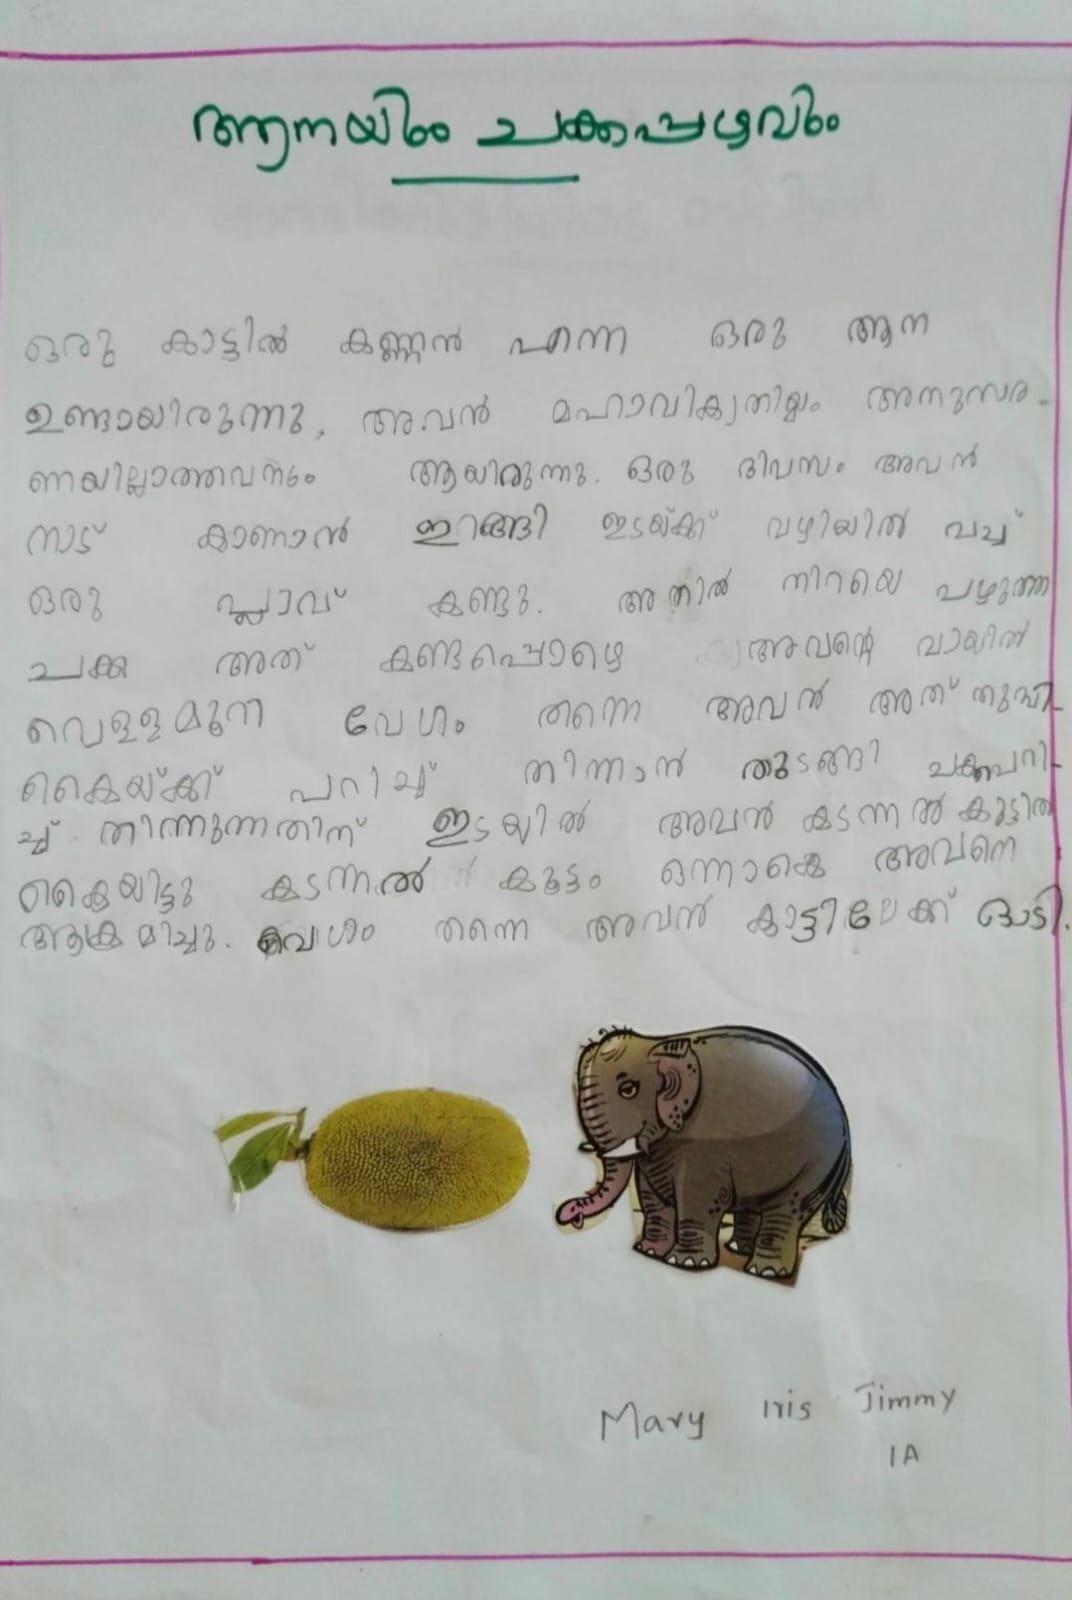 ആനയും ചക്കപ്പഴവും
ഒരു കാട്ടിൽ കണ്ണൻ എന്ന ഒരു ആന
ഉണ്ടായിരുന്നു, അവൻ മഹാവികൃതിയും അനുസര-
ണയില്ലാത്തവനും ആയിരുന്നു. ഒരു ദിവസം അവൻ
നാട് കാണാൻ ഇറങ്ങി ഇടയ്ക്ക് വഴിയിൽ വച്ച്
ഒരു പ്ലാവ് കണ്ടു. അതിൽ നിറയെ പഴുത്ത
ചക്ക അത് കണ്ടപ്പൊഴെ അവന്റെ വായിൽ
വെള്ളമൂറി വേഗം തന്നെ അവൻ അത് തുമ്പി-
കൈയ്ക്ക് പറിച്ച് തിന്നാൻ തുടങ്ങി ചക്കപറി-
ച്ച് തിന്നുന്നതിന് ഇടയിൽ അവൻ കടന്നൽ കൂട്ടിൽ
കൈയിട്ടു കടന്നൽ കൂട്ടം ഒന്നാകെ അവനെ
ആക്രമിച്ചു. വേഗം തന്നെ അവൻ കാട്ടിലേക്ക് ഓടി.
Mary Iris Jimmy
1A